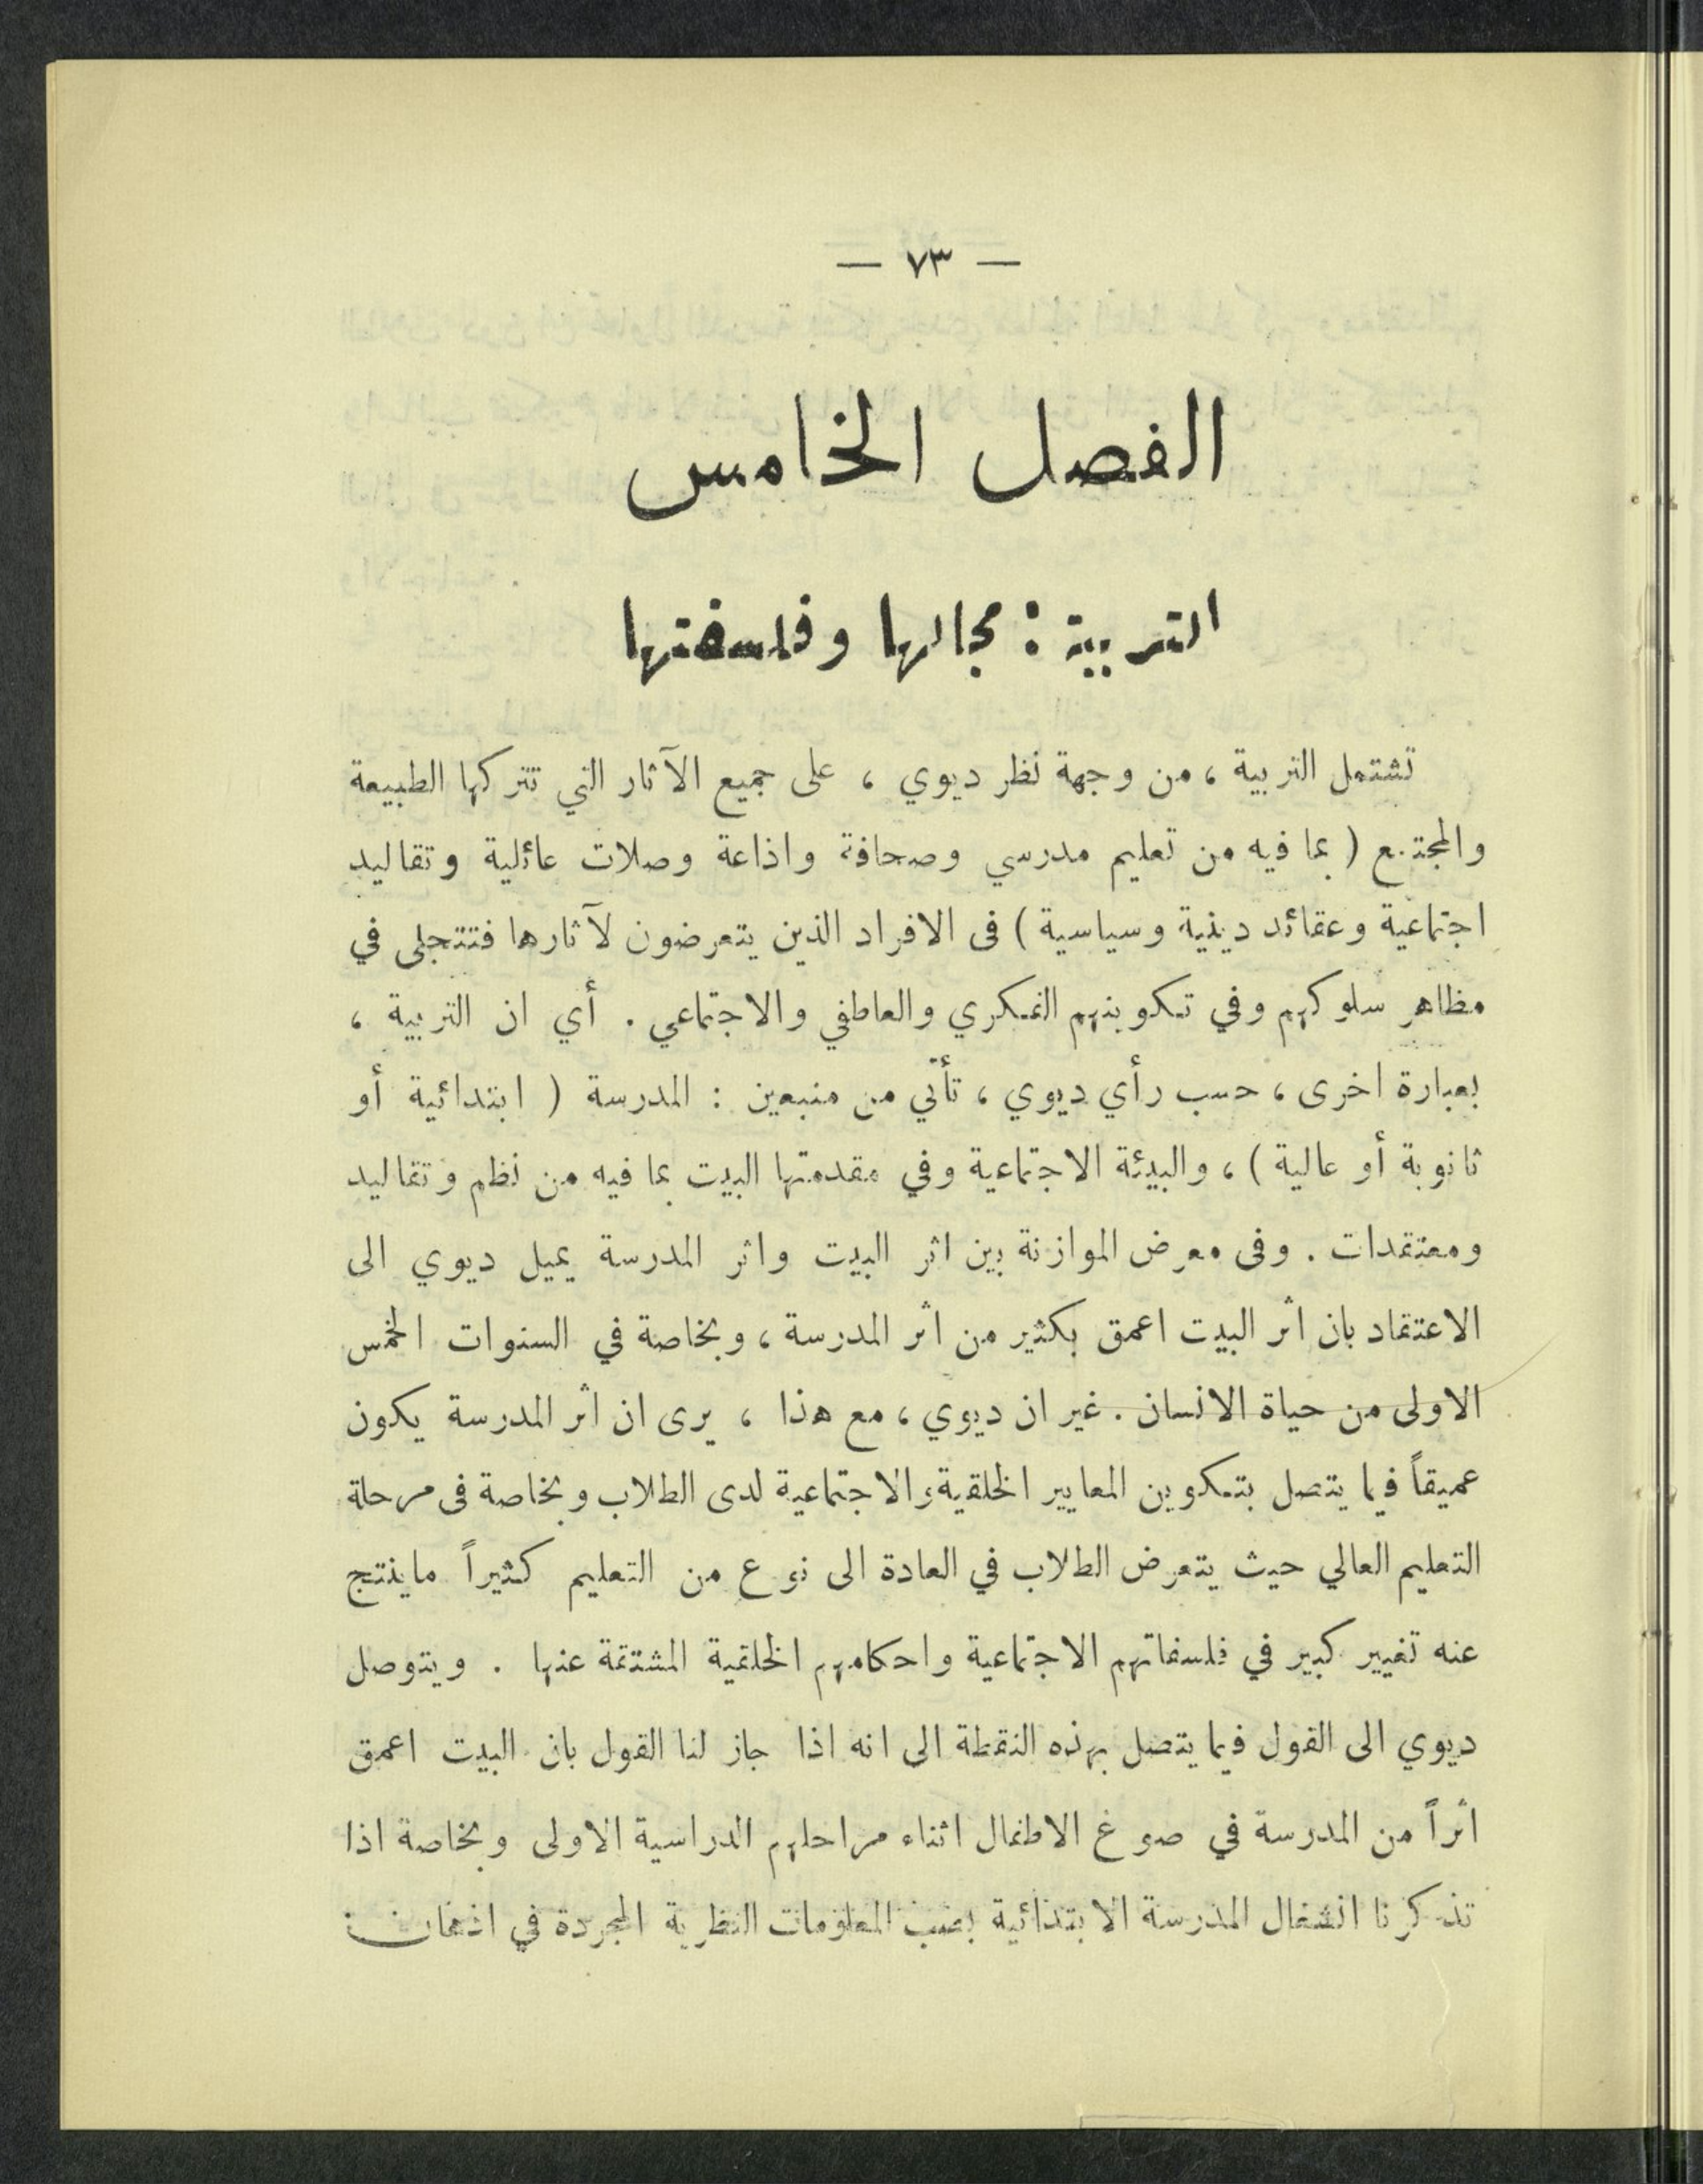 — ٧٣ —
الفصل الخامس
التربية : مجالها وفلسفتها
تشتمل التربية ، من وجهة نظر ديوي ، على جميع الآثار التي تتركها الطبيعة
والمجتمع ( بما فيه من تعليم مدرسي وصحافة واذاعة وصلات عائلية وتقاليد
اجتماعية وعقائد دينية وسياسية ) فى الافراد الذين يتعرضون لآثارها فتتجلى في
مظاهر سلوكهم وفي تكوينهم الفكري والعاطفي والاجتماعي . أي ان التربية ،
بعبارة اخرى ، حسب رأي ديوي ، تأتي من منبعين : المدرسة ( ابتدائية أو
ثانوية أو عالية ) ، والبيئة الاجتماعية وفي مقدمتها البيت بما فيه من نظم وتقاليد
ومعتقدات . وفى معرض الموازنة بين اثر البيت واثر المدرسة يميل ديوي الى
الاعتقاد بان اثر البيت اعمق بكثير من اثر المدرسة ، وبخاصة في السنوات الخمس
الاولى من حياة الانسان . غير ان ديوي ، مع هذا ، يرى ان اثر المدرسة يكون
عميقاً فيما يتصل بتكوين المعايير الخلقية والاجتماعية لدى الطلاب وبخاصة فى مرحلة
التعليم العالي حيث يتعرض الطلاب في العادة الى نوع من التعليم كثيراً ماينتج
عنه تغيير كبير في فلسفاتهم الاجتماعية واحكامهم الخلقية المشتقة عنها . ويتوصل
ديوي الى القول فيما يتصل بهذه النقطة الى انه اذا جاز لنا القول بان البيت اعمق
اثراً من المدرسة في صوغ الاطفال اثناء مراحلهم الدراسية الاولى وبخاصة اذا
تذكرنا انشغال المدرسة الابتدائية بصب المعلومات النظرية المجردة في اذهان